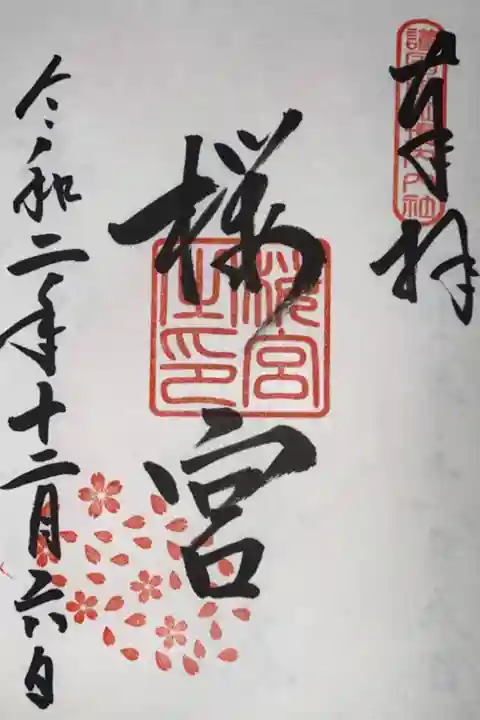 奉拝
櫻宮
櫻宮
之印
令和二年十二月六日